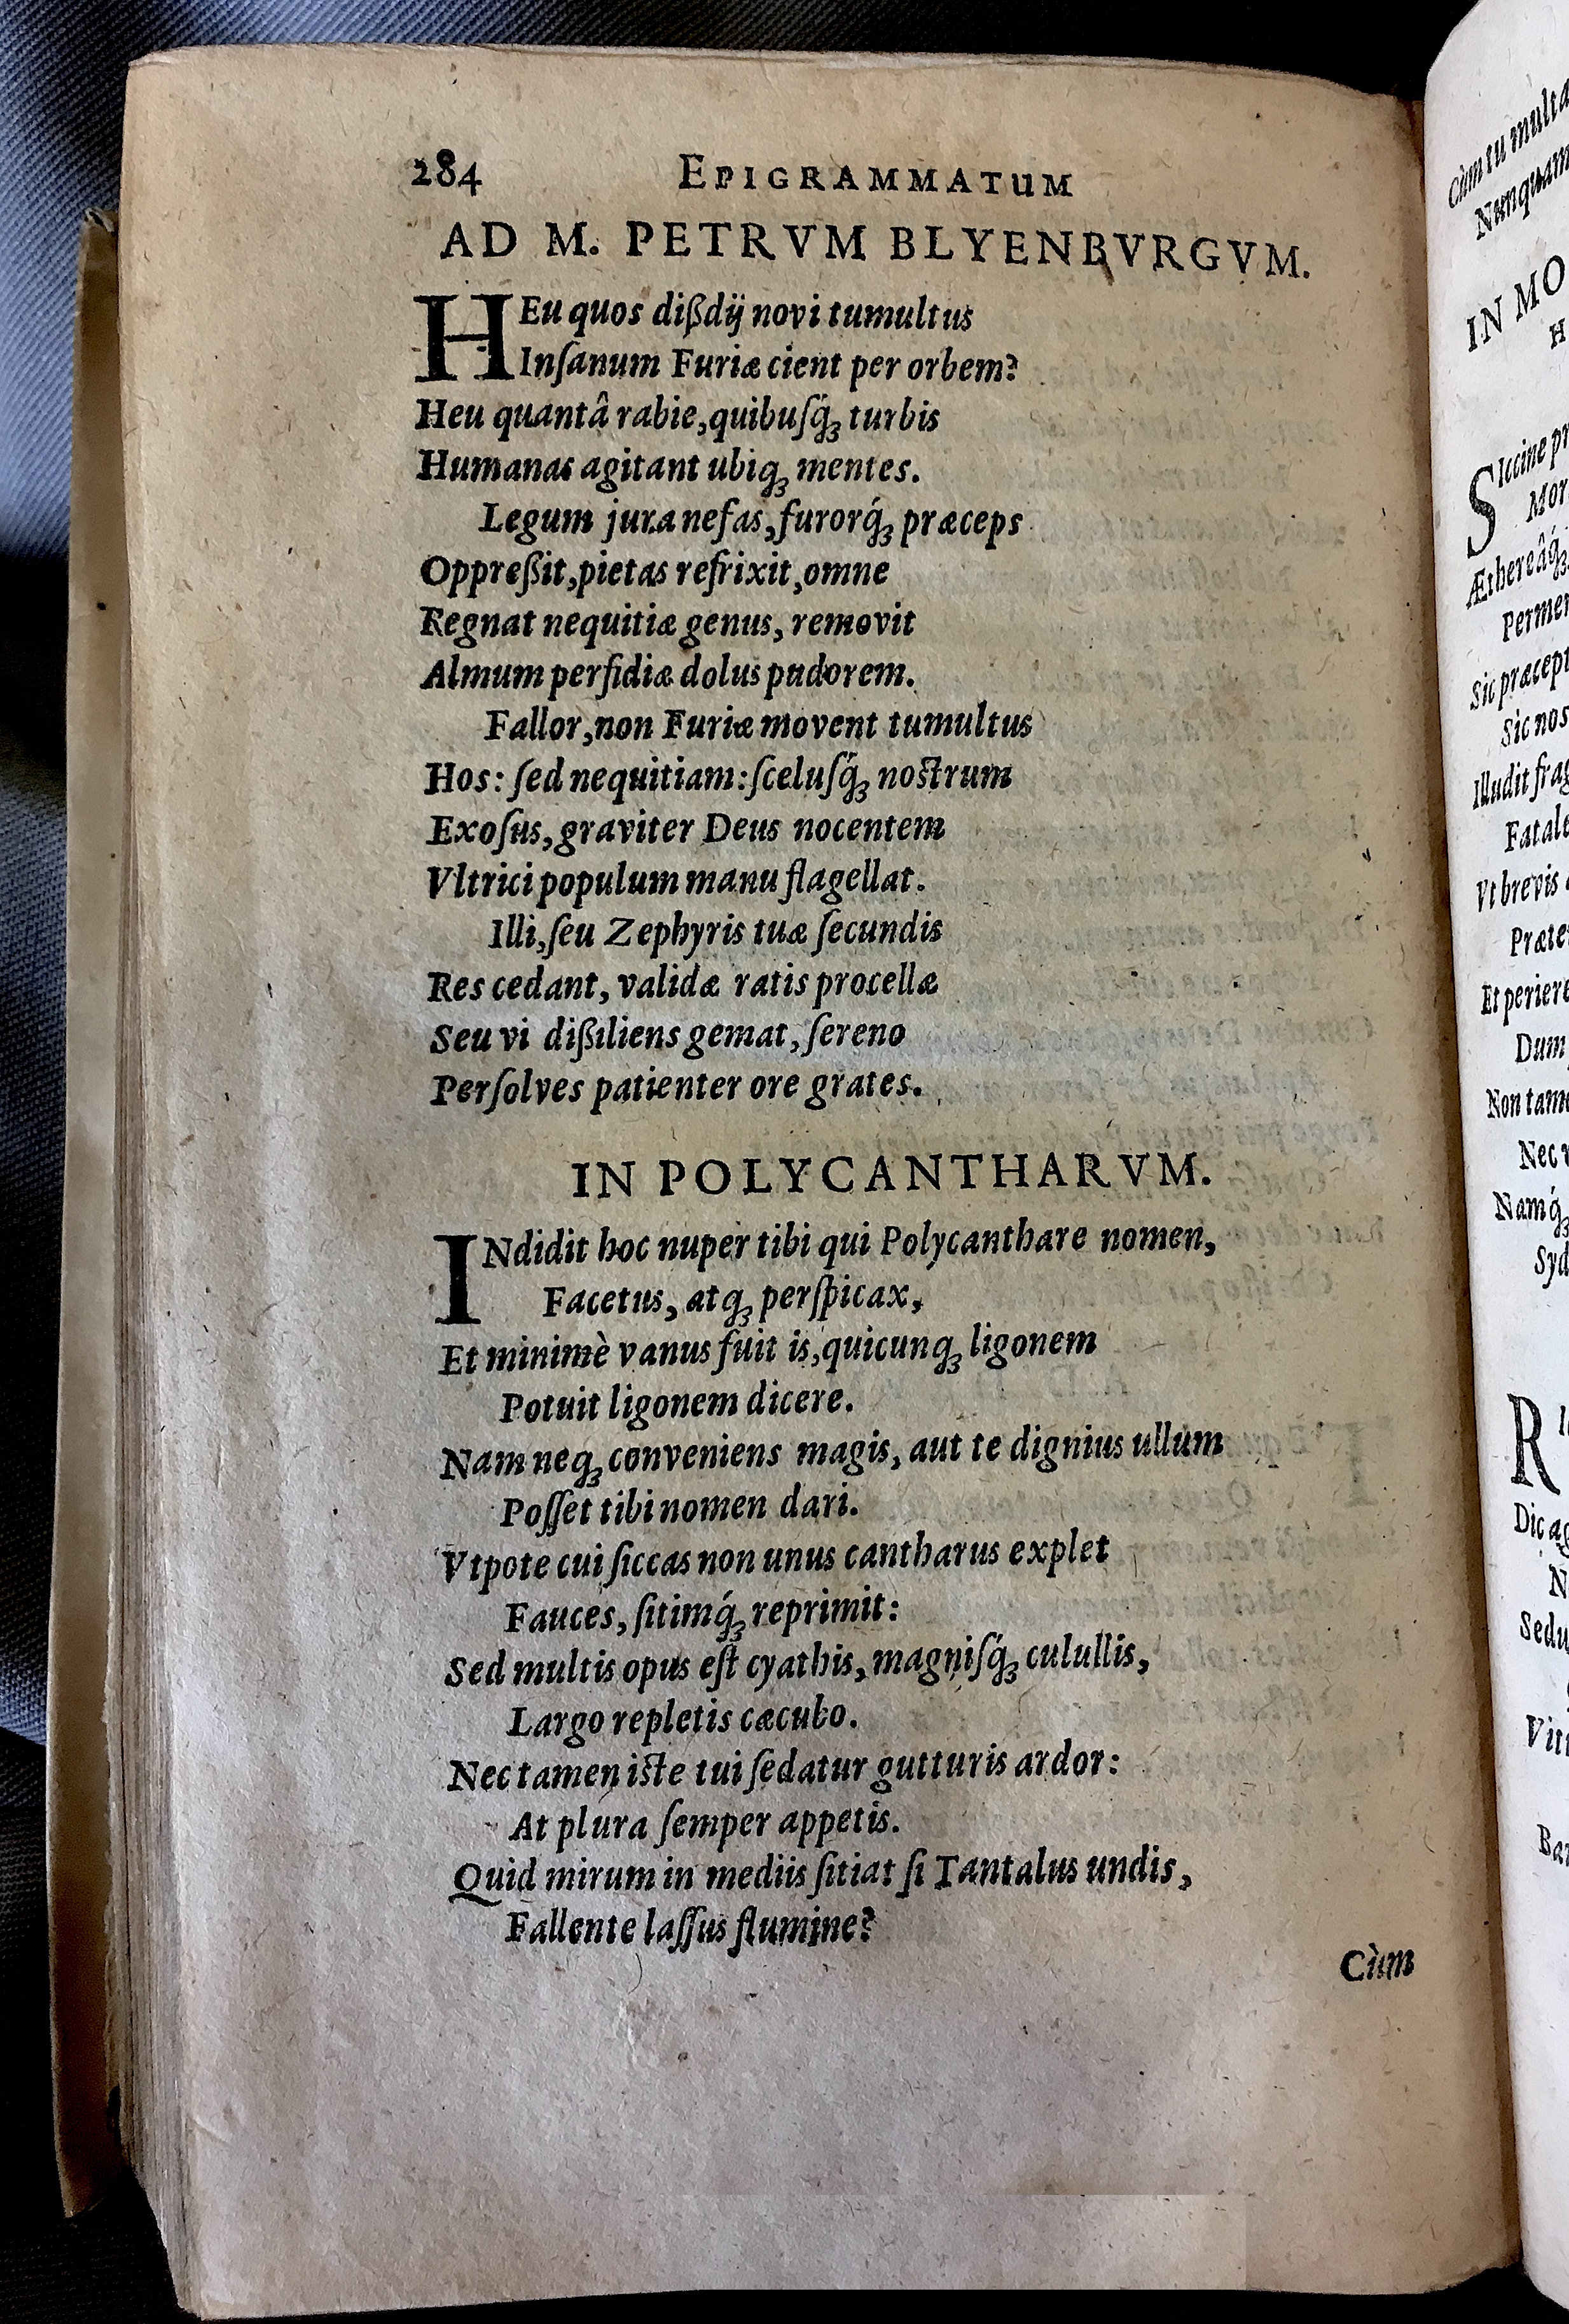 284 EPIGRAMMATUM
AD M. PETRVM BLYENBVRGVM.
HEu quos dißdij novi tumultus
Inſanum Furiæ cient per orbem?
Heu quantâ rabie, quibuſq́ꝫ turbis
Humanas agitant ubiqꝫ mentes.
Legum jura nefas, furorq́ꝫ præceps
Oppreßit, pietas refrixit, omne
Regnat nequitiæ genus, removit
Almum perfidiæ dolus pudorem.
Fallor, non Furiæ movent tumultus
Hos: ſed nequitiam: ſceluſq́ꝫ noſtrum
Exoſus, graviter Deus nocentem
Vltrici populum manu flagellat.
Illi, ſeu Zephyris tuæ ſecundis
Res cedant, validæ ratis procellæ
Seu vi dißiliens gemat, ſereno
Perſolves patienter ore grates.
IN POLYCANTHARVM.
INdidit hoc nuper tibi qui Polycanthare nomen,
Facetus, atqꝫ perſpicax,
Et minimè vanus fuit is, quicunqꝫ ligonem
Potuit ligonem dicere.
Nam neqꝫ conveniens magis, aut te dignius ullum
Poſſet tibi nomen dari.
Vtpote cui ſiccas non unus cantharus explet
Fauces, ſitimq́ꝫ reprimit:
Sed multis opus eſt cyathis, magniſq́ꝫ culullis,
Largo repletis cæcubo.
Nec tamen iſte tui ſedatur gutturis ardor:
At plura ſemper appetis.
Quid mirum in mediis ſitiat ſi Tantalus undis,
Fallente laſſus flumine?
Cùm
Cùm tu multa
Nunquam
IN MO
H
SIccine pr
Mor
Æthereâq́ꝫ
Permen
Sic præcept
Sic nos
Illudit frag
Fatale
Vt brevis
Præte
Et periere
Dum
Non tam
Nec v
Namq́ꝫ
Syd
R
Dic ag
N
Sedu
Viti
Bar